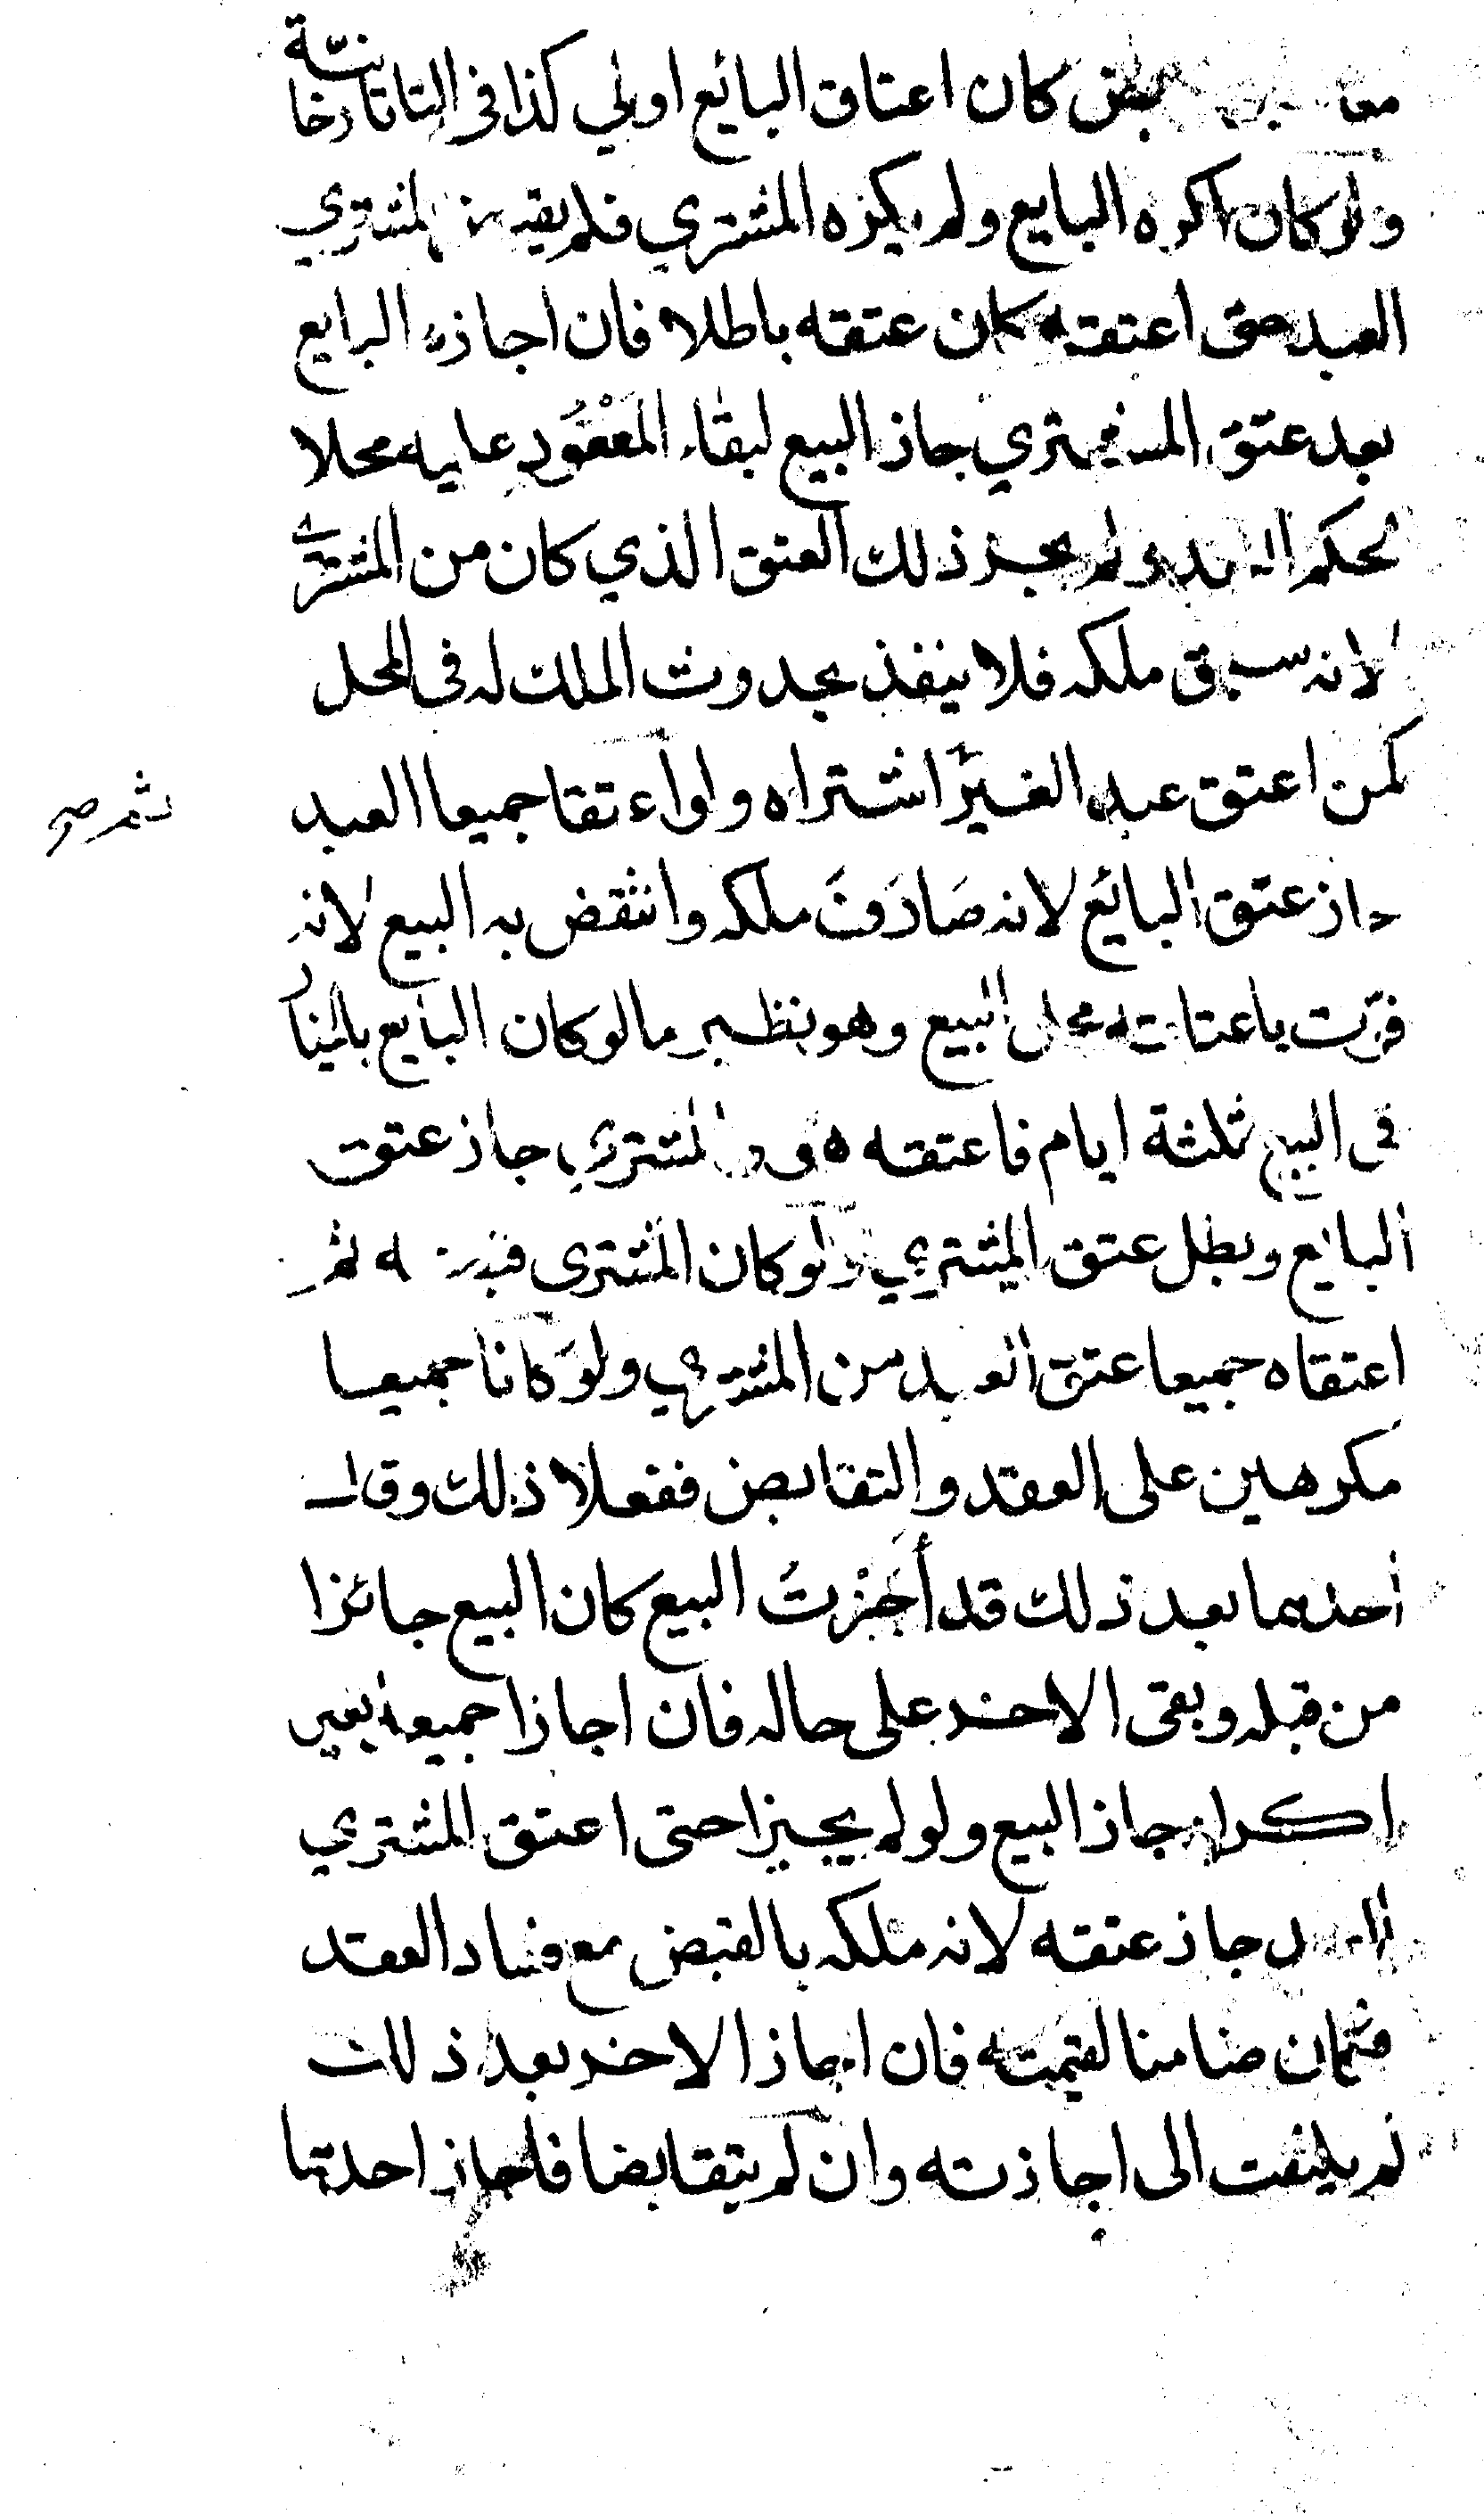 معا كان اعتاق البائع اولي كذا في التاتارخانيّة
ولو كان اكره البايع ولم يكره المشتري فلم يقبض المشتري
العبد حتى اعتقه كان عتقه باطلا فان اجازه البايع
بعد عتق المشتري جاز البيع لبقاء المَعْقُودِ عليه محلا
لحكم العقد ولم يجز ذلك العتق الذي كان من المشتري
لانه سبق ملكه فلا ينفذ بحدوث الملك له في المحل
كمن اعتق عبد الغير اشتراه ولو اعتقا جميعا العبد
ثم صح
جاز عتق البائع لانه صَادَفَ ملكه وانتقض به البيع لانه
فوّت باعتاقه محل البيع وهو نظير ما لو كان البايع بالخيار
في البيع ثلثة ايام فاعتقه هو والمشتري جاز عتق
البايع وبطل عتق المشتري ولو كان المشتري قبضه ثم
اعتقاه جميعا عتق العبد من المشتري ولو كانا جميعا
مكرهين على العقد والتقابض ففعلا ذلك وقال
احدهما بعد ذلك قد أَجَزْتُ البيع كان البيع جائزا
من قبله وبقى الاخر على حاله فان اجازا جميعا بغير
اكراه جاز البيع ولو لم يجيزا حتى اعتق المشتري
العبد جاز عتقه لانه ملكه بالقبض مع فساد العقد
فكان ضامنا لقيمته فان اجاز الاخر بعد ذلك
لم يلتفت الى اجازته وان لم يتقابضا فاجاز احدهما